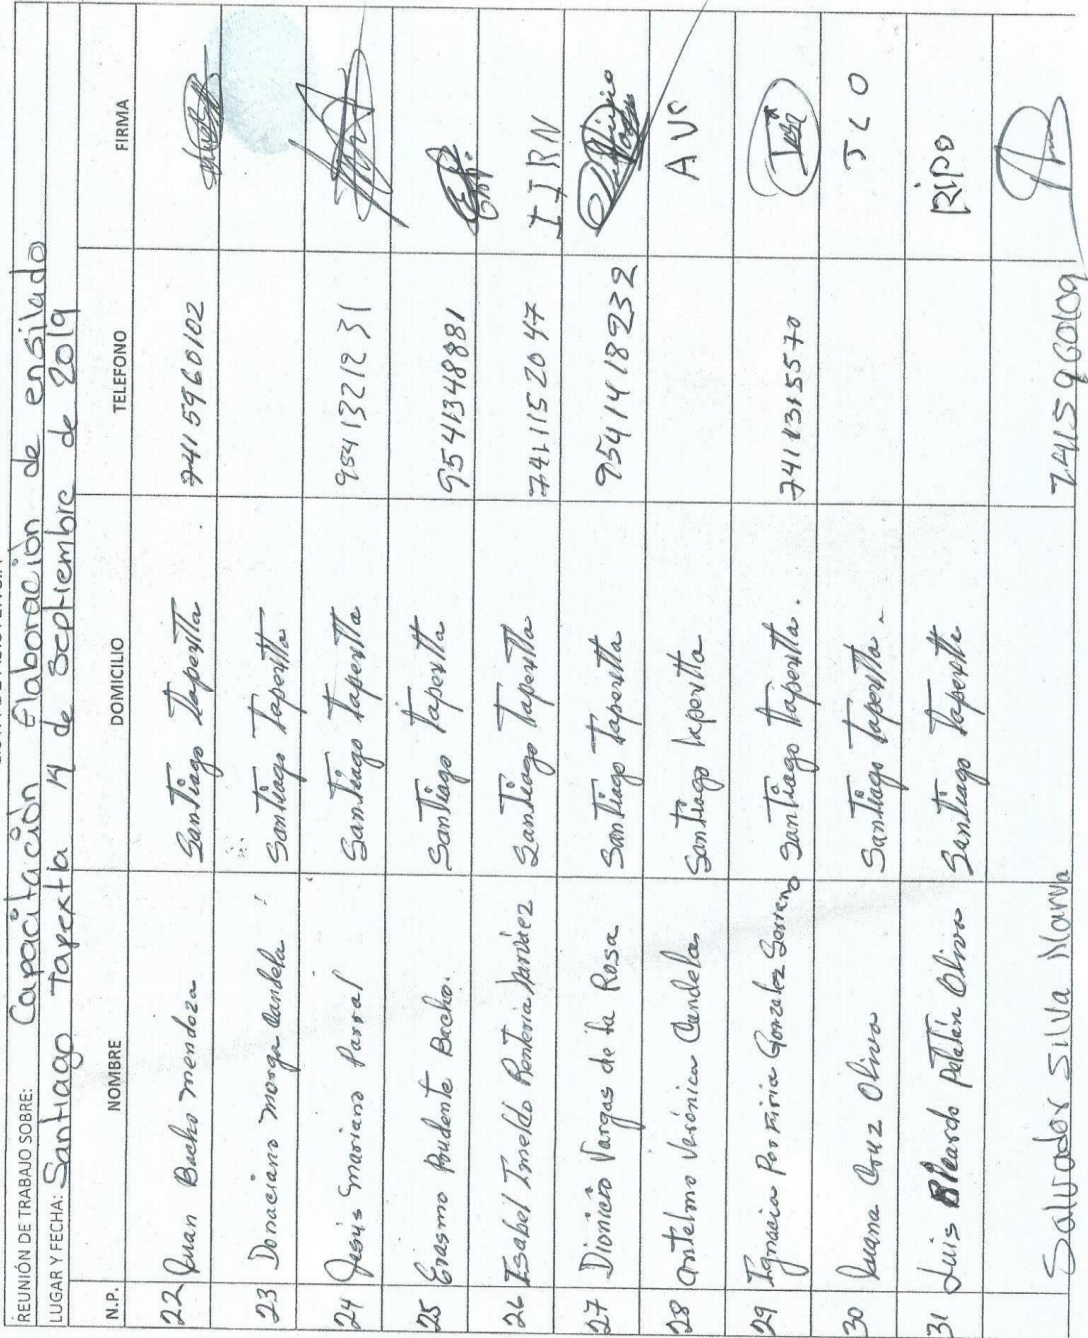 REUNIÓN DE TRABAJO SOBRE: Capacitación Elaboración de ensilado
LUGAR Y FECHA: Santiago Tapextla 14 de Septiembre de 2019
N.P. NOMBRE DOMICILIO TELEFONO FIRMA
22 Juan Bacho mendoza Santiago Tapextla 741 5960102
23 Donaciano morga Candela Santiago Tapextla
24 Jesús mariano Parral Santiago Tapextla 954 132 12 31
25 Erasmo Prudente Bacho. Santiago Tapextla 9541348881
26 Isabel Imelda Rentería Narváez Santiago Tapextla 741 115 20 47 IIRN
27 Dionicio Vargas de la Rosa Santiago Tapextla 9541418232
28 Antelmo Verónica Candela Santiago Tapextla AVC
29 Ignacia Porfiria González Santiago Tapextla. 741 1315570
30 Juana Cruz Oliva Santiago Tapextla. JCO
31 Luis Petatán Oliva Santiago Tapextla RiPO
Salvador Silva 7415960109